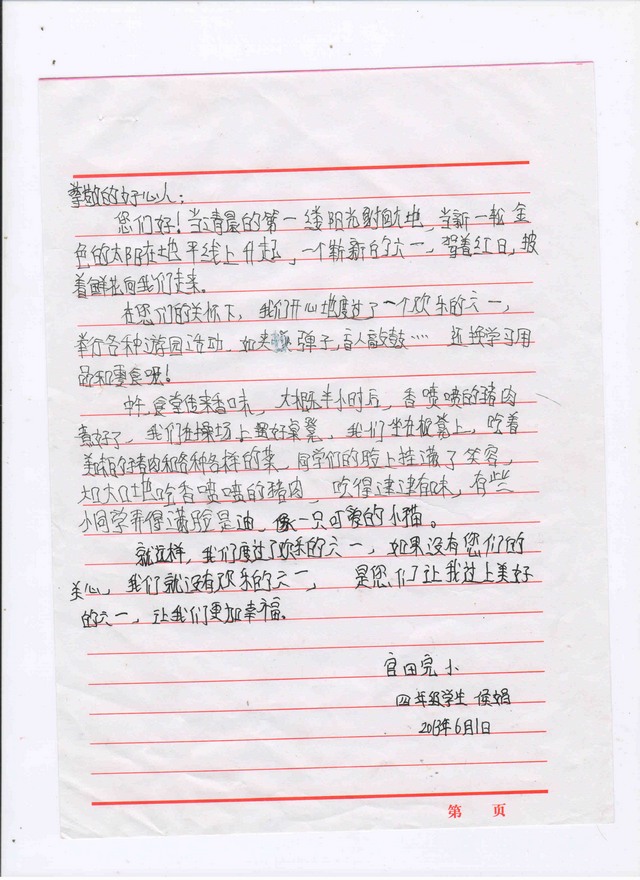 尊敬的好心人：
您们好！当清晨的第一缕阳光射向大地，当新一轮金
色的太阳在地平线上升起，一个崭新的六一，驾着红日，披
着鲜花向我们走来。
在您们的关怀下，我们开心地度过了一个欢乐的六一，
举行各种游园活动，如夹弹子，盲人敲鼓……还换学习用
品和零食呢！
中午，食堂传来香味，大概半小时后，香喷喷的猪肉
煮好了，我们在操场上摆好桌凳，我们坐在板凳上，吃着
美味的猪肉和各种各样的菜，同学们的脸上挂满了笑容，
大口大口地吃香喷喷的猪肉，吃得津津有味，有些
小同学弄得满脸是油，像一只可爱的小猫。
就这样，我们度过了欢乐的六一，如果没有您们的
关心，我们就没有欢乐的六一，是您们让我过上美好
的六一，让我们更加幸福。
官田完小
四年级学生 侯娟
2013年6月1日
第 页